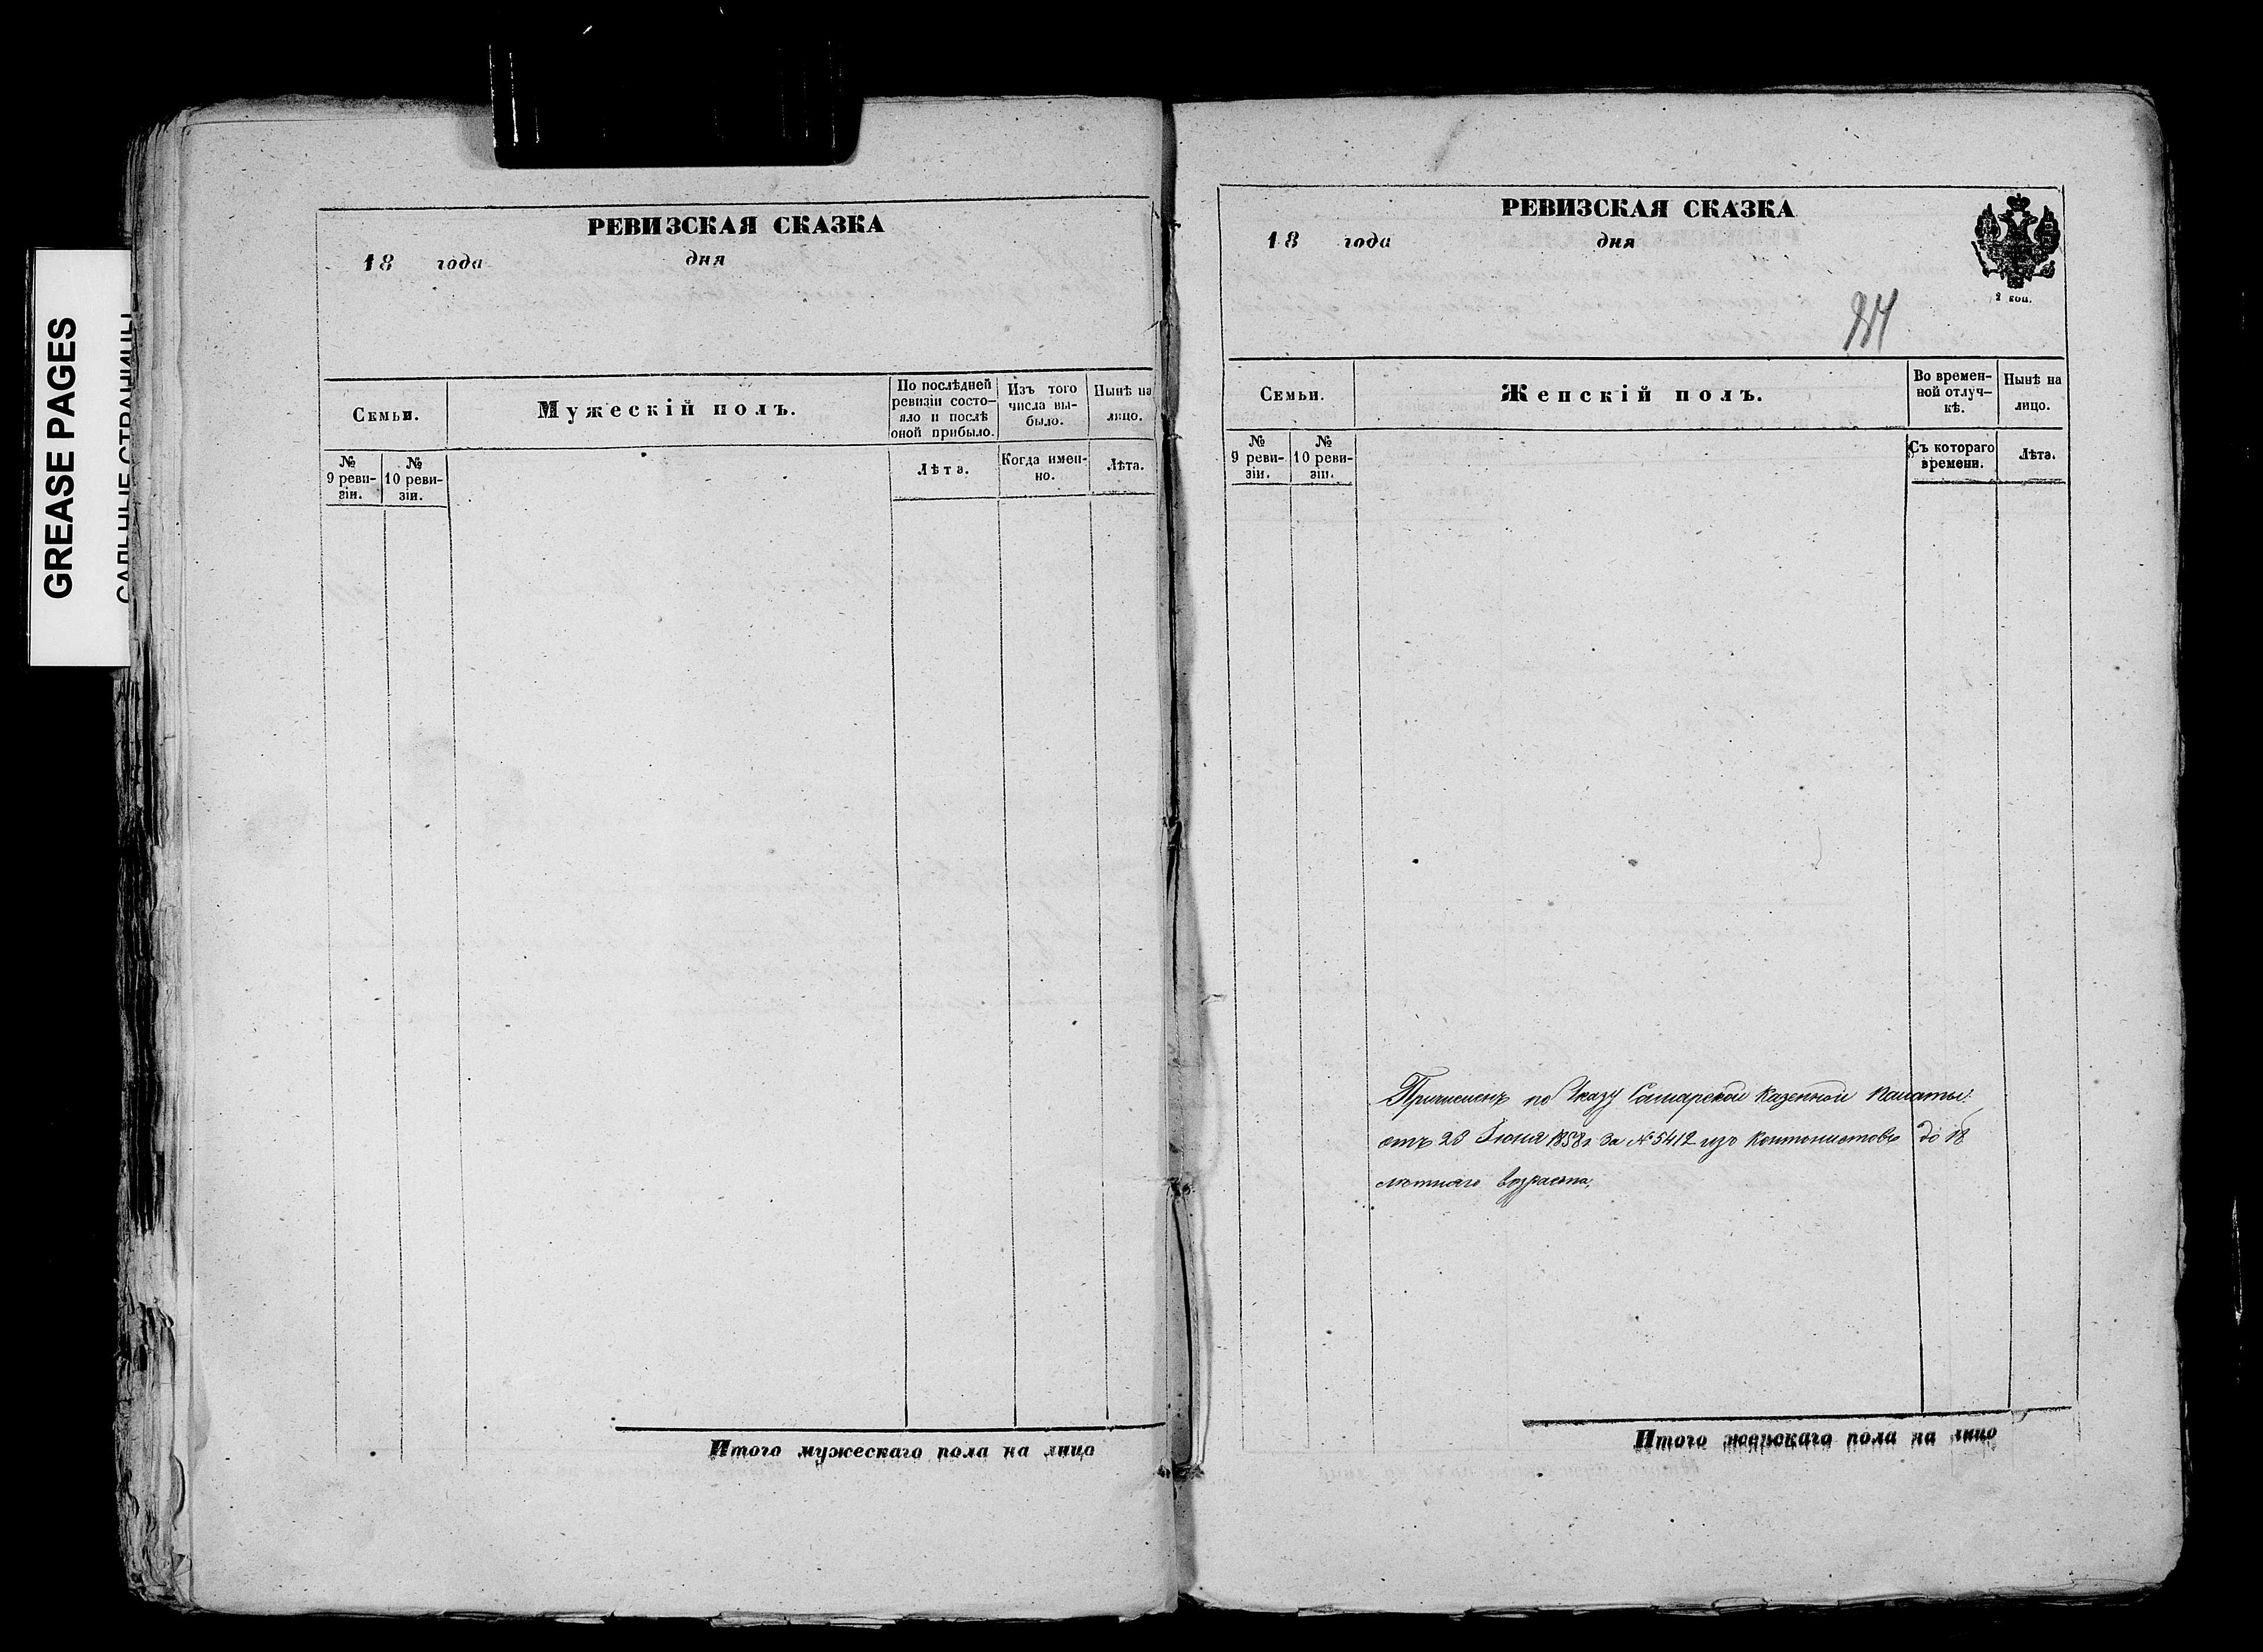 GREASE PAGES
САЛЬНЫЕ СТРАНИЦЫ
РЕВИЗСКАЯ СКАЗКА
18 года дня
Семьи.
Мужескій полъ.
По послѣдней
ревизіи состо-
яло и послѣ
оной прибыло.
Изъ того
числа вы-
было.
Нынѣ на
лицо.
№
9 реви-
зіи.
№
10 реви-
зіи.
Лѣта.
Когда имен-
но.
Лѣта.
Итого мужескаго пола на лицо
РЕВИЗСКАЯ СКАЗКА
18 года дня
2 коп.
Семьи.
Женскій полъ.
Во времен-
ной отлуч-
кѣ.
Нынѣ на
лицо.
№
9 реви-
зіи.
№
10 реви-
зіи.
Съ котораго
времени.
Лѣта.
Причисленъ по Указу Самарской Казенной Палаты
отъ 23 Іюня 1858 г. за № 5412 изъ Контонистовъ до 18
лѣтняго возраста,
Итого женскаго пола на лицо